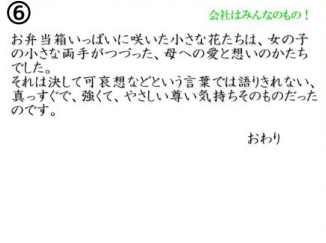 ⑥
会社はみんなのもの！
お弁当箱いっぱいに咲いた小さな花たちは、女の子
の小さな両手がつづった、母への愛と想いのかたち
でした。
それは決して可哀想などという言葉では語りきれない、
真っすぐで、強くて、やさしい尊い気持ちそのものだった
のです。
おわり